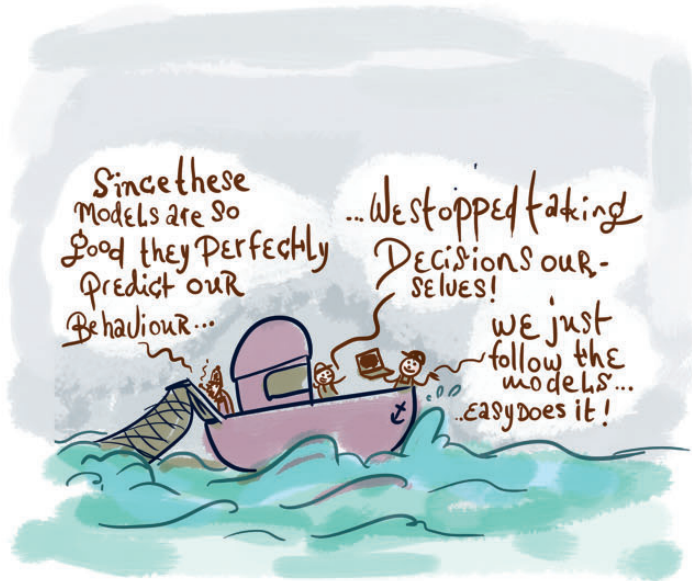 Since these
Models are so
good they perfectly
predict our
Behaviour...
...We stopped taking
Decisions our-
selves!
we just
follow the
models...
..easy does it!